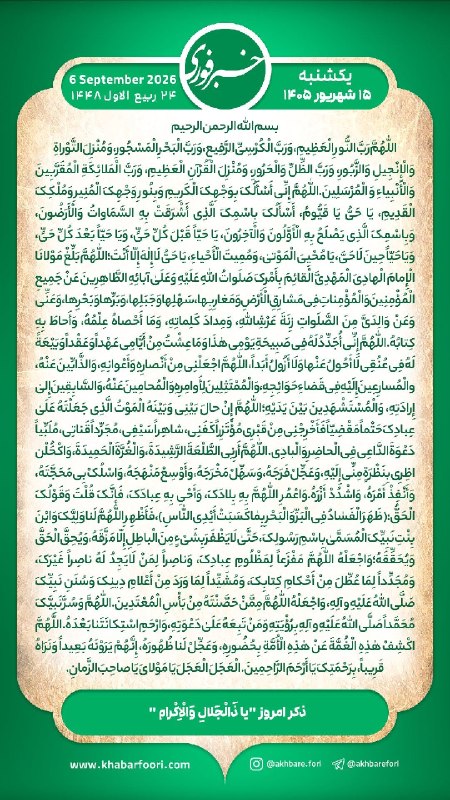 خبرفوری
یکشنبه
۱۵ شهریور ۱۴۰۵
6 September 2026
۲۴ ربیع الاول ۱۴۴۸
بسم الله الرحمن الرحیم
اللَّهُمَّ رَبَّ النُّورِ الْعَظِیمِ، وَرَبَّ الْکُرْسِیِّ الرَّفِیعِ، وَرَبَّ الْبَحْرِ الْمَسْجُورِ، وَمُنْزِلَ التَّوْراةِ
وَالْإِنْجِیلِ وَالزَّبُورِ، وَرَبَّ الظِّلِّ وَالْحَرُورِ، وَمُنْزِلَ الْقُرْآنِ الْعَظِیمِ، وَرَبَّ الْمَلائِکَةِ الْمُقَرَّبِینَ
وَالْأَنْبِیاءِ وَالْمُرْسَلِینَ. اللَّهُمَّ إِنِّی أَسْأَلُکَ بِوَجْهِکَ الْکَرِیمِ وَبِنُورِ وَجْهِکَ الْمُنِیرِ وَمُلْکِکَ
الْقَدِیمِ، یَا حَیُّ یَا قَیُّومُ، أَسْأَلُکَ بِاسْمِکَ الَّذِی أَشْرَقَتْ بِهِ السَّمَاوَاتُ وَالْأَرَضُونَ،
وَبِاسْمِکَ الَّذِی یَصْلَحُ بِهِ الْأَوَّلُونَ وَالْآخِرُونَ، یَا حَیّاً قَبْلَ کُلِّ حَیٍّ، وَیَا حَیّاً بَعْدَ کُلِّ حَیٍّ،
وَیَا حَیّاً حِینَ لَا حَیَّ، یَا مُحْیِیَ الْمَوْتىٰ، وَمُمِیتَ الْأَحْیاءِ، یَا حَیُّ لَاإِلٰهَ إِلّا أَنْتَ؛ اللَّهُمَّ بَلِّغْ مَوْلانَا
الْإِمامَ الْهادِیَ الْمَهْدِیَّ الْقائِمَ بِأَمْرِکَ صَلَواتُ اللهِ عَلَیْهِ وَعَلَىٰ آبائِهِ الطَّاهِرِینَ عَنْ جَمِیعِ
الْمُؤْمِنِینَ وَالْمُؤْمِناتِ فِی مَشارِقِ الْأَرْضِ وَمَغارِبِها، سَهْلِها وَجَبَلِها، وَبَرِّها وَبَحْرِها، وَعَنِّی
وَعَنْ وَالِدَیَّ مِنَ الصَّلَواتِ زِنَةَ عَرْشِ اللهِ، وَمِدادَ کَلِماتِهِ، وَمَا أَحْصاهُ عِلْمُهُ، وَأَحاطَ بِهِ
کِتابُهُ. اللَّهُمَّ إِنِّی أُجَدِّدُ لَهُ فِی صَبِیحَةِ یَوْمِی هٰذَا وَمَا عِشْتُ مِنْ أَیَّامِی عَهْداً وَعَقْداً وَبَیْعَةً
لَهُ فِی عُنُقِی لَا أَحُولُ عَنْها وَلَا أَزُولُ أَبَداً، اللَّهُمَّ اجْعَلْنِی مِنْ أَنْصارِهِ وَأَعْوانِهِ، وَالذَّابِّینَ عَنْهُ،
وَالْمُسارِعِینَ إِلَیْهِ فِی قَضاءِ حَوَائِجِهِ، وَالْمُمْتَثِلِینَ لِأَوامِرِهِ وَالْمُحامِینَ عَنْهُ، وَالسَّابِقِینَ إِلىٰ
إِرادَتِهِ، وَالْمُسْتَشْهَدِینَ بَیْنَ یَدَیْهِ؛ اللَّهُمَّ إِنْ حالَ بَیْنِی وَبَیْنَهُ الْمَوْتُ الَّذِی جَعَلْتَهُ عَلَىٰ
عِبادِکَ حَتْماً مَقْضِیّاً فَأَخْرِجْنِی مِنْ قَبْرِی مُؤْتَزِراً کَفَنِی، شاهِراً سَیْفِی، مُجَرِّداً قَناتِی، مُلَبِّیاً
دَعْوَةَ الدَّاعِی فِی الْحاضِرِ وَالْبادِی. اللَّهُمَّ أَرِنِی الطَّلْعَةَ الرَّشِیدَةَ، وَالْغُرَّةَ الْحَمِیدَةَ، وَاکْحُلْ
ناظِرِی بِنَظْرَةٍ مِنِّی إِلَیْهِ، وَعَجِّلْ فَرَجَهُ، وَسَهِّلْ مَخْرَجَهُ، وَأَوْسِعْ مَنْهَجَهُ، وَاسْلُکْ بِی مَحَجَّتَهُ،
وَأَنْفِذْ أَمْرَهُ، وَاشْدُدْ أَزْرَهُ، وَاعْمُرِ اللَّهُمَّ بِهِ بِلادَکَ، وَأَحْیِ بِهِ عِبادَکَ، فَإِنَّکَ قُلْتَ وَقَوْلُکَ
الْحَقُّ: (ظَهَرَ الْفَسَادُ فِی الْبَرِّ وَالْبَحْرِ بِمَا کَسَبَتْ أَیْدِی النَّاسِ)، فَأَظْهِرِ اللَّهُمَّ لَنا وَلِیَّکَ وَابْنَ
بِنْتِ نَبِیِّکَ الْمُسَمَّىٰ بِاسْمِ رَسُولِکَ، حَتَّىٰ لَا یَظْفَرَ بِشَیْءٍ مِنَ الْباطِلِ إِلّا مَزَّقَهُ، وَیُحِقَّ الْحَقَّ
وَیُحَقِّقَهُ؛ وَاجْعَلْهُ اللَّهُمَّ مَفْزَعاً لِمَظْلُومِ عِبادِکَ، وَناصِراً لِمَنْ لَا یَجِدُ لَهُ ناصِراً غَیْرَکَ،
وَمُجَدِّداً لِمَا عُطِّلَ مِنْ أَحْکامِ کِتابِکَ، وَمُشَیِّداً لِمَا وَرَدَ مِنْ أَعْلامِ دِینِکَ وَسُنَنِ نَبِیِّکَ
صَلَّى اللهُ عَلَیْهِ وَآلِهِ، وَاجْعَلْهُ اللَّهُمَّ مِمَّنْ حَصَّنْتَهُ مِنْ بَأْسِ الْمُعْتَدِینَ. اللَّهُمَّ وَسُرَّ نَبِیَّکَ
مُحَمَّداً صَلَّى اللهُ عَلَیْهِ وَآلِهِ بِرُؤْیَتِهِ وَمَنْ تَبِعَهُ عَلَىٰ دَعْوَتِهِ، وَارْحَمِ اسْتِکانَتَنا بَعْدَهُ. اللَّهُمَّ
اکْشِفْ هٰذِهِ الْغُمَّةَ عَنْ هٰذِهِ الْأُمَّةِ بِحُضُورِهِ، وَعَجِّلْ لَنا ظُهُورَهُ، إِنَّهُمْ یَرَوْنَهُ بَعِیداً وَنَرَاهُ
قَرِیباً، بِرَحْمَتِکَ یَا أَرْحَمَ الرَّاحِمِینَ. الْعَجَلَ الْعَجَلَ یَا مَوْلایَ یَا صاحِبَ الزَّمانِ.
ذکر امروز "یا ذَالْجَلالِ وَالْاِکْرام "
www.khabarfoori.com
@akhbare.fori
@akhbarefori